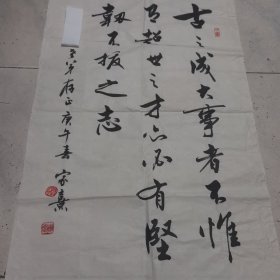 古之成大事者不惟
有超世之才亦必有坚
韧不拔之志
弟存正庚午春家熹